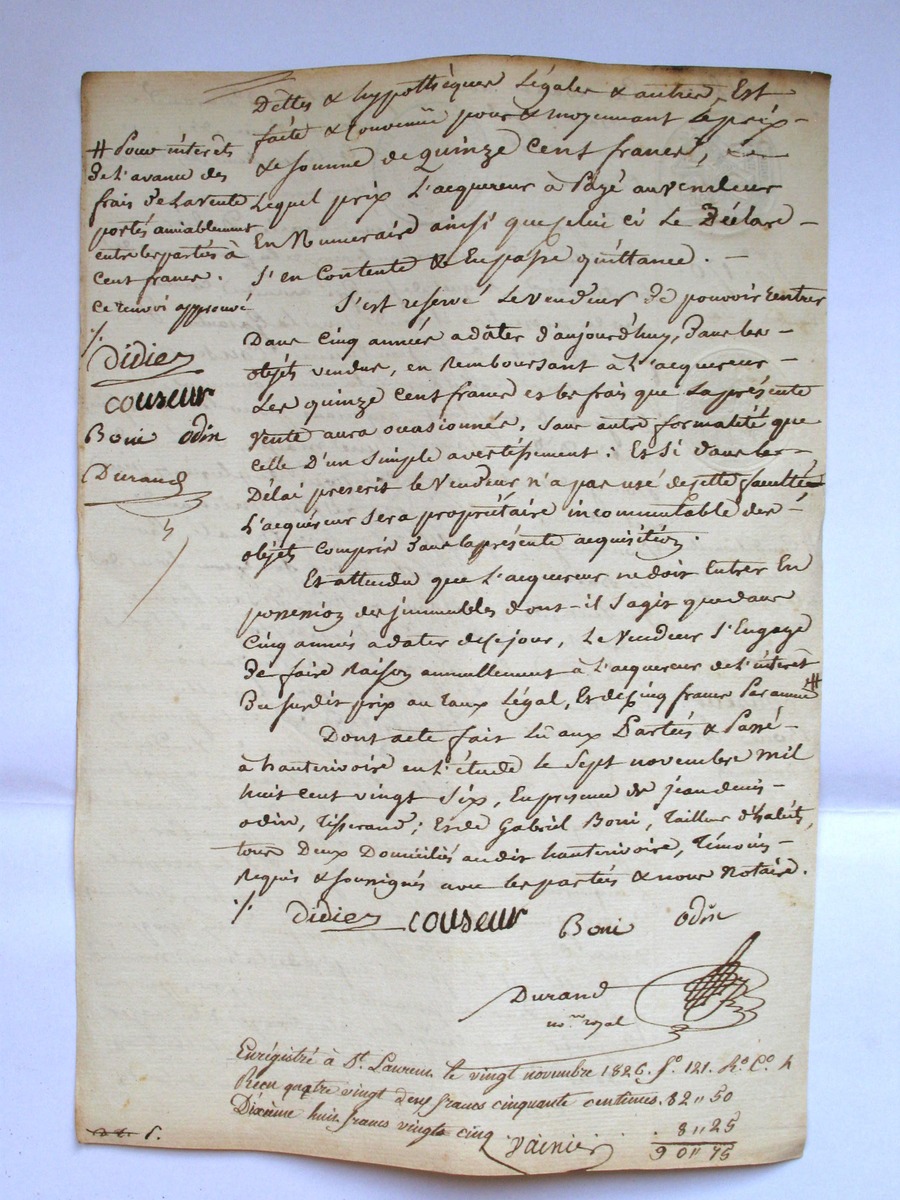 Dettes & hypothèques Légales & autres, Est
faite & Convenue pour & moyennant Le prix
& somme de Quinze Cent francs,
Lequel prix L'acquereur à Payé au vendeur
En Numeraire ainsi que celui ci Le Déclare
S'en Contente & En passe quittance.
S'est reservé Le vendeur de pouvoir rentrer
Dans Cinq années a dater d'aujourd'huy, dans les
objets vendus, en Remboursant à L'acquereur
Les quinze Cent francs et les frais que La présente
vente aura occasionnés, sans autre formalité que
celle D'un simple avertissement : Et Si dans le
Délai prescrit le Vendeur n'a pas usé de cette faculté
L'acquéreur Sera propriétaire incommutable des
objets Compris dans la présente acquisition.
Et attendu que L'acquereur ne doit Entrer En
possession des immeubles dont il S'agit que dans
Cinq années a dater de ce jour, Le Vendeur S'Engage
de faire Raison annuellement à L'acquereur de L'intérêt
Du susdit prix au taux Légal, Et de Cinq francs Par année #
Dont acte fait Lû aux Parties & Passé
à hauterivoire en L'étude le Sept novembre mil
huit cent vingt Six, En présence de jean denis
odin, Tisserand ; Et de Gabriel Boni, Tailleur d'habits,
tous Deux Domiciliés au dit hauterivoire, Témoins
Requis & soussignés avec les parties & nous Notaire. ./.
Didier couseur Boni odin
Durand
no.re royal
# Pour intérêts
de L'avance des
frais de La vente
portés amiablement
entre les parties à
Cent francs.
Ce renvoi approuvé
./.
Didier
couseur
Boni odin
Durand
Enregistré à St. Laurent le vingt novembre 1826. f.o 121. R.o C.o 4
Reçu quatre vingt deux francs cinquante centimes. 82 " 50
Dixième huit francs vingt cinq 8 " 25
Vainier 90 " 75